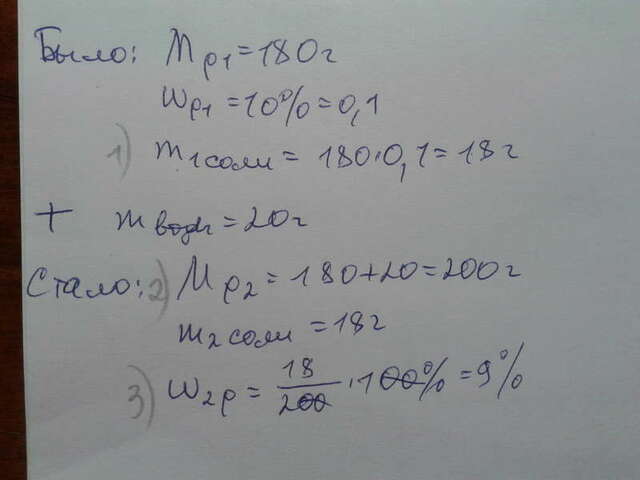 Было: Mр1=180г
Wр1=10%=0,1
1) m1соли=180·0,1=18г
+ mводы=20г
Стало: 2) Mр2=180+20=200г
m2соли=18г
3) W2р=18/200·100%=9%